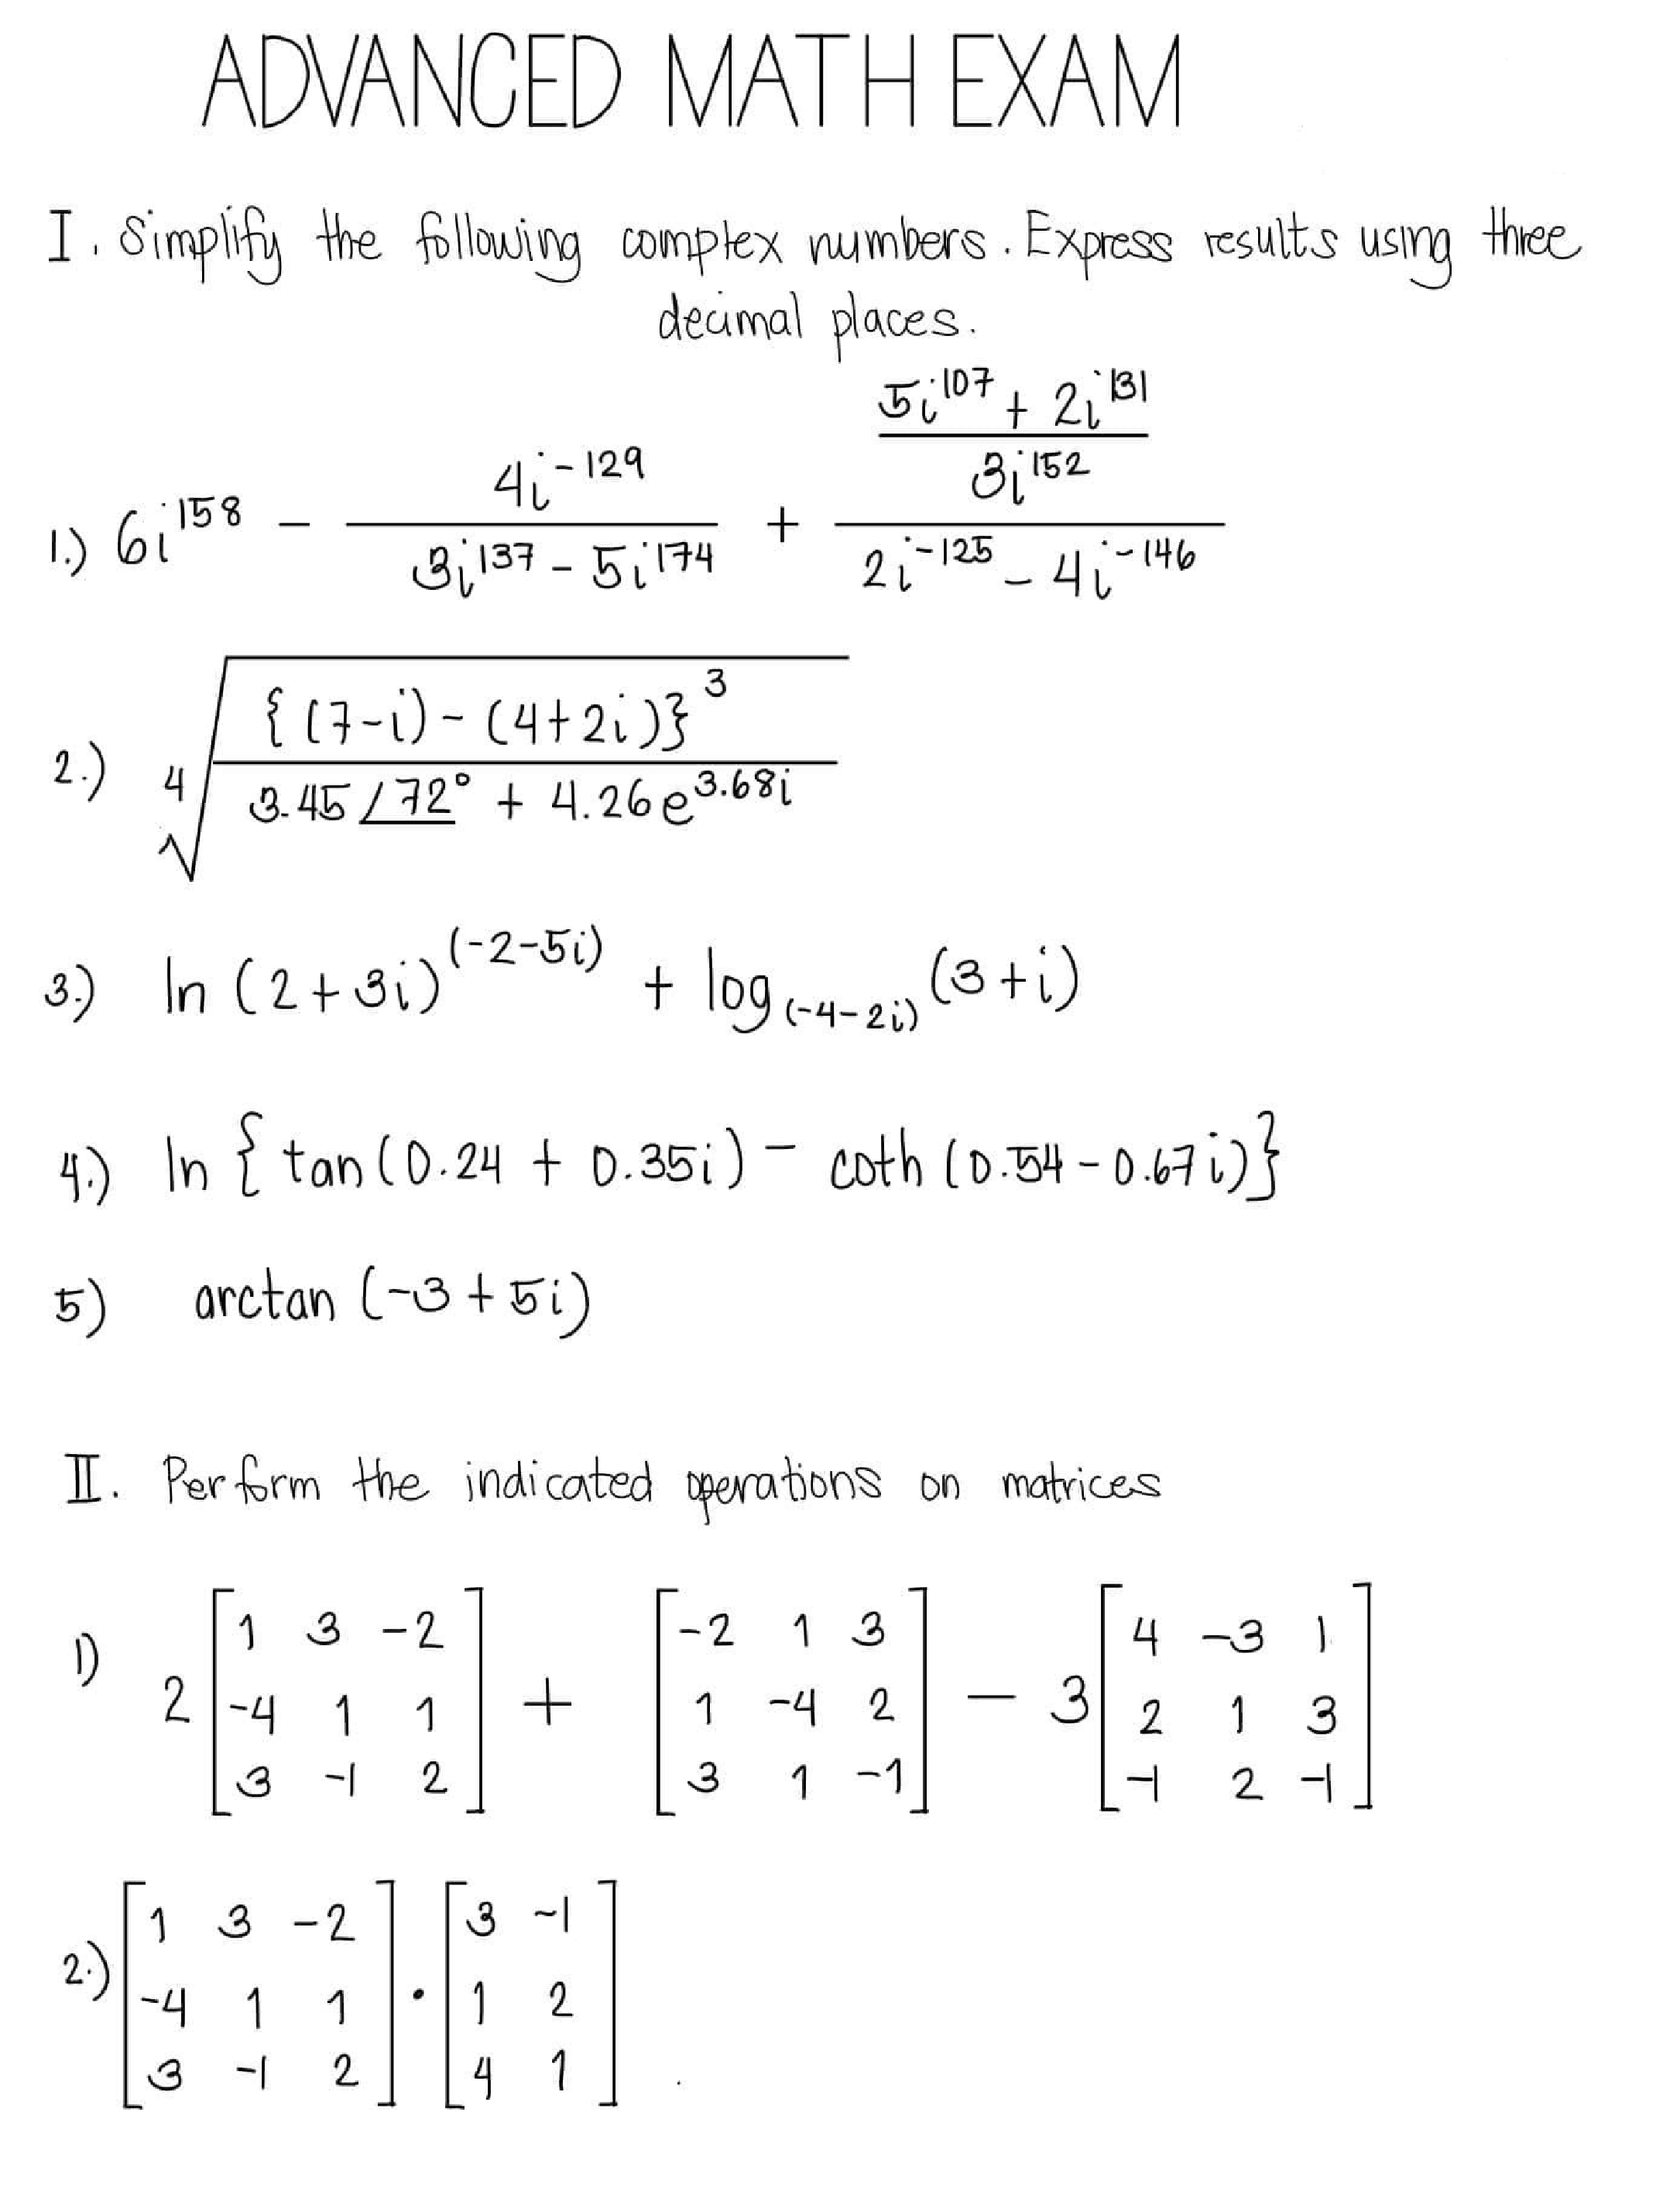 ADVANCED MATH EXAM
I. Simplify the following complex numbers. Express results using three
decimal places.
1.) 6i^158 - (4i^-129)/(3i^137 - 5i^174) + ((5i^107 + 2i^131)/(3i^152))/(2i^-125 - 4i^-146)
2.) ⁴√({(7-i) - (4+2i)}^3/(3.45∠72° + 4.26e^3.68i))
3.) ln (2+3i)^(-2-5i) + log_(-4-2i) (3+i)
4.) ln {tan(0.24 + 0.35i) - coth (0.54 - 0.67i)}
5) arctan (-3+5i)
II. Perform the indicated operations on matrices
1) 2 [1 3 -2; -4 1 1; 3 -1 2] + [-2 1 3; 1 -4 2; 3 1 -1] - 3 [4 -3 1; 2 1 3; -1 2 -1]
2.) [1 3 -2; -4 1 1; 3 -1 2] · [3 -1; 1 2; 4 1]